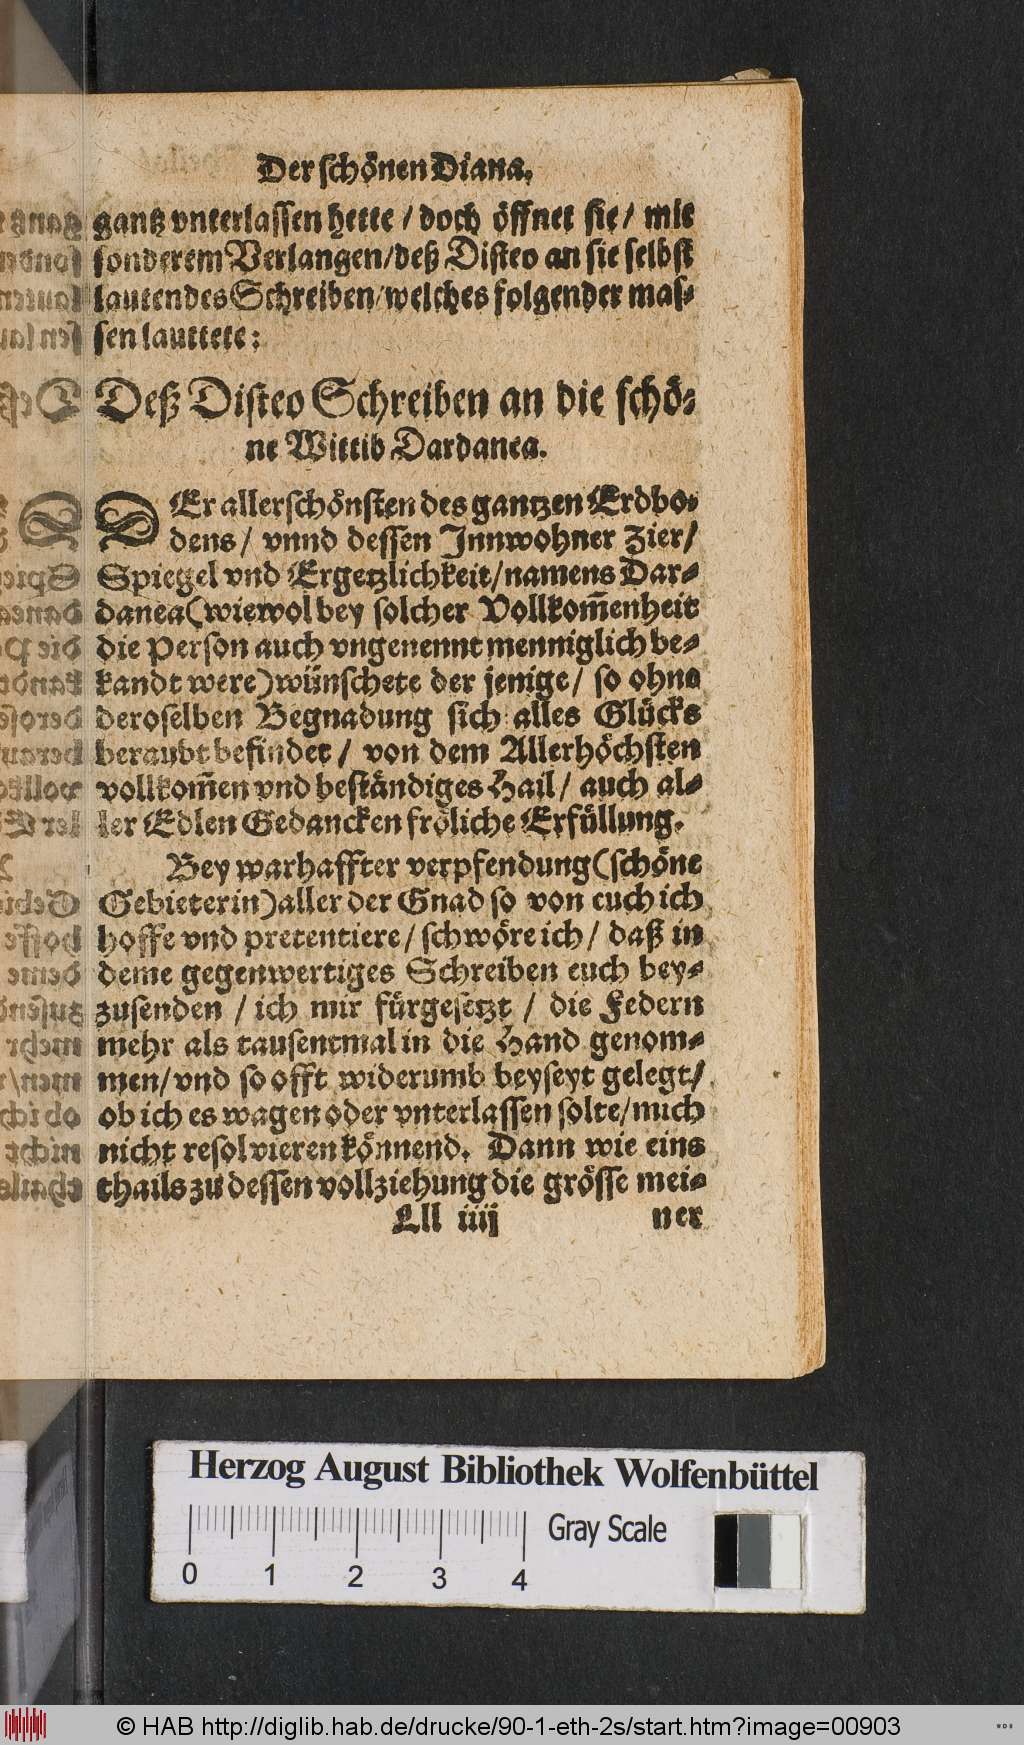 Der schönen Diana.
gantz vnterlassen hette / doch öffnet sie / mit
sonderem Verlangen/deß Disteo an sie selbst
lautendes Schreiben/welches folgender mas-
sen lauttete:
Deß Disteo Schreiben an die schö-
ne Wittib Dardanea.
DEr allerschönsten des gantzen Erdbo-
dens / vnnd dessen Innwohner Zier/
Spiegel vnd Ergetzlichkeit/namens Dar-
danea(wiewol bey solcher Vollkom̃enheit
die Person auch vngenennt menniglich be-
kandt were)wünschete der jenige/ so ohne
deroselben Begnadung sich alles Glücks
beraubt befindet / von dem Allerhöchsten
vollkom̃en vnd beständiges Hail/ auch al-
ler Edlen Gedancken fröliche Erfüllung.
Bey warhaffter verpfendung(schöne
Gebieterin)aller der Gnad so von euch ich
hoffe vnd pretentiere/ schwöre ich/ daß in
deme gegenwertiges Schreiben euch bey-
zusenden / ich mir fürgesetzt / die Federn
mehr als tausentmal in die Hand genom-
men/vnd so offt widerumb beyseyt gelegt/
ob ich es wagen oder vnterlassen solte/mich
nicht resolvieren könnend. Dann wie eins
thails zu dessen vollziehung die grösse mei-
Lll iiij ner
Herzog August Bibliothek Wolfenbüttel
Gray Scale
0 1 2 3 4
© HAB http://diglib.hab.de/drucke/90-1-eth-2s/start.htm?image=00903